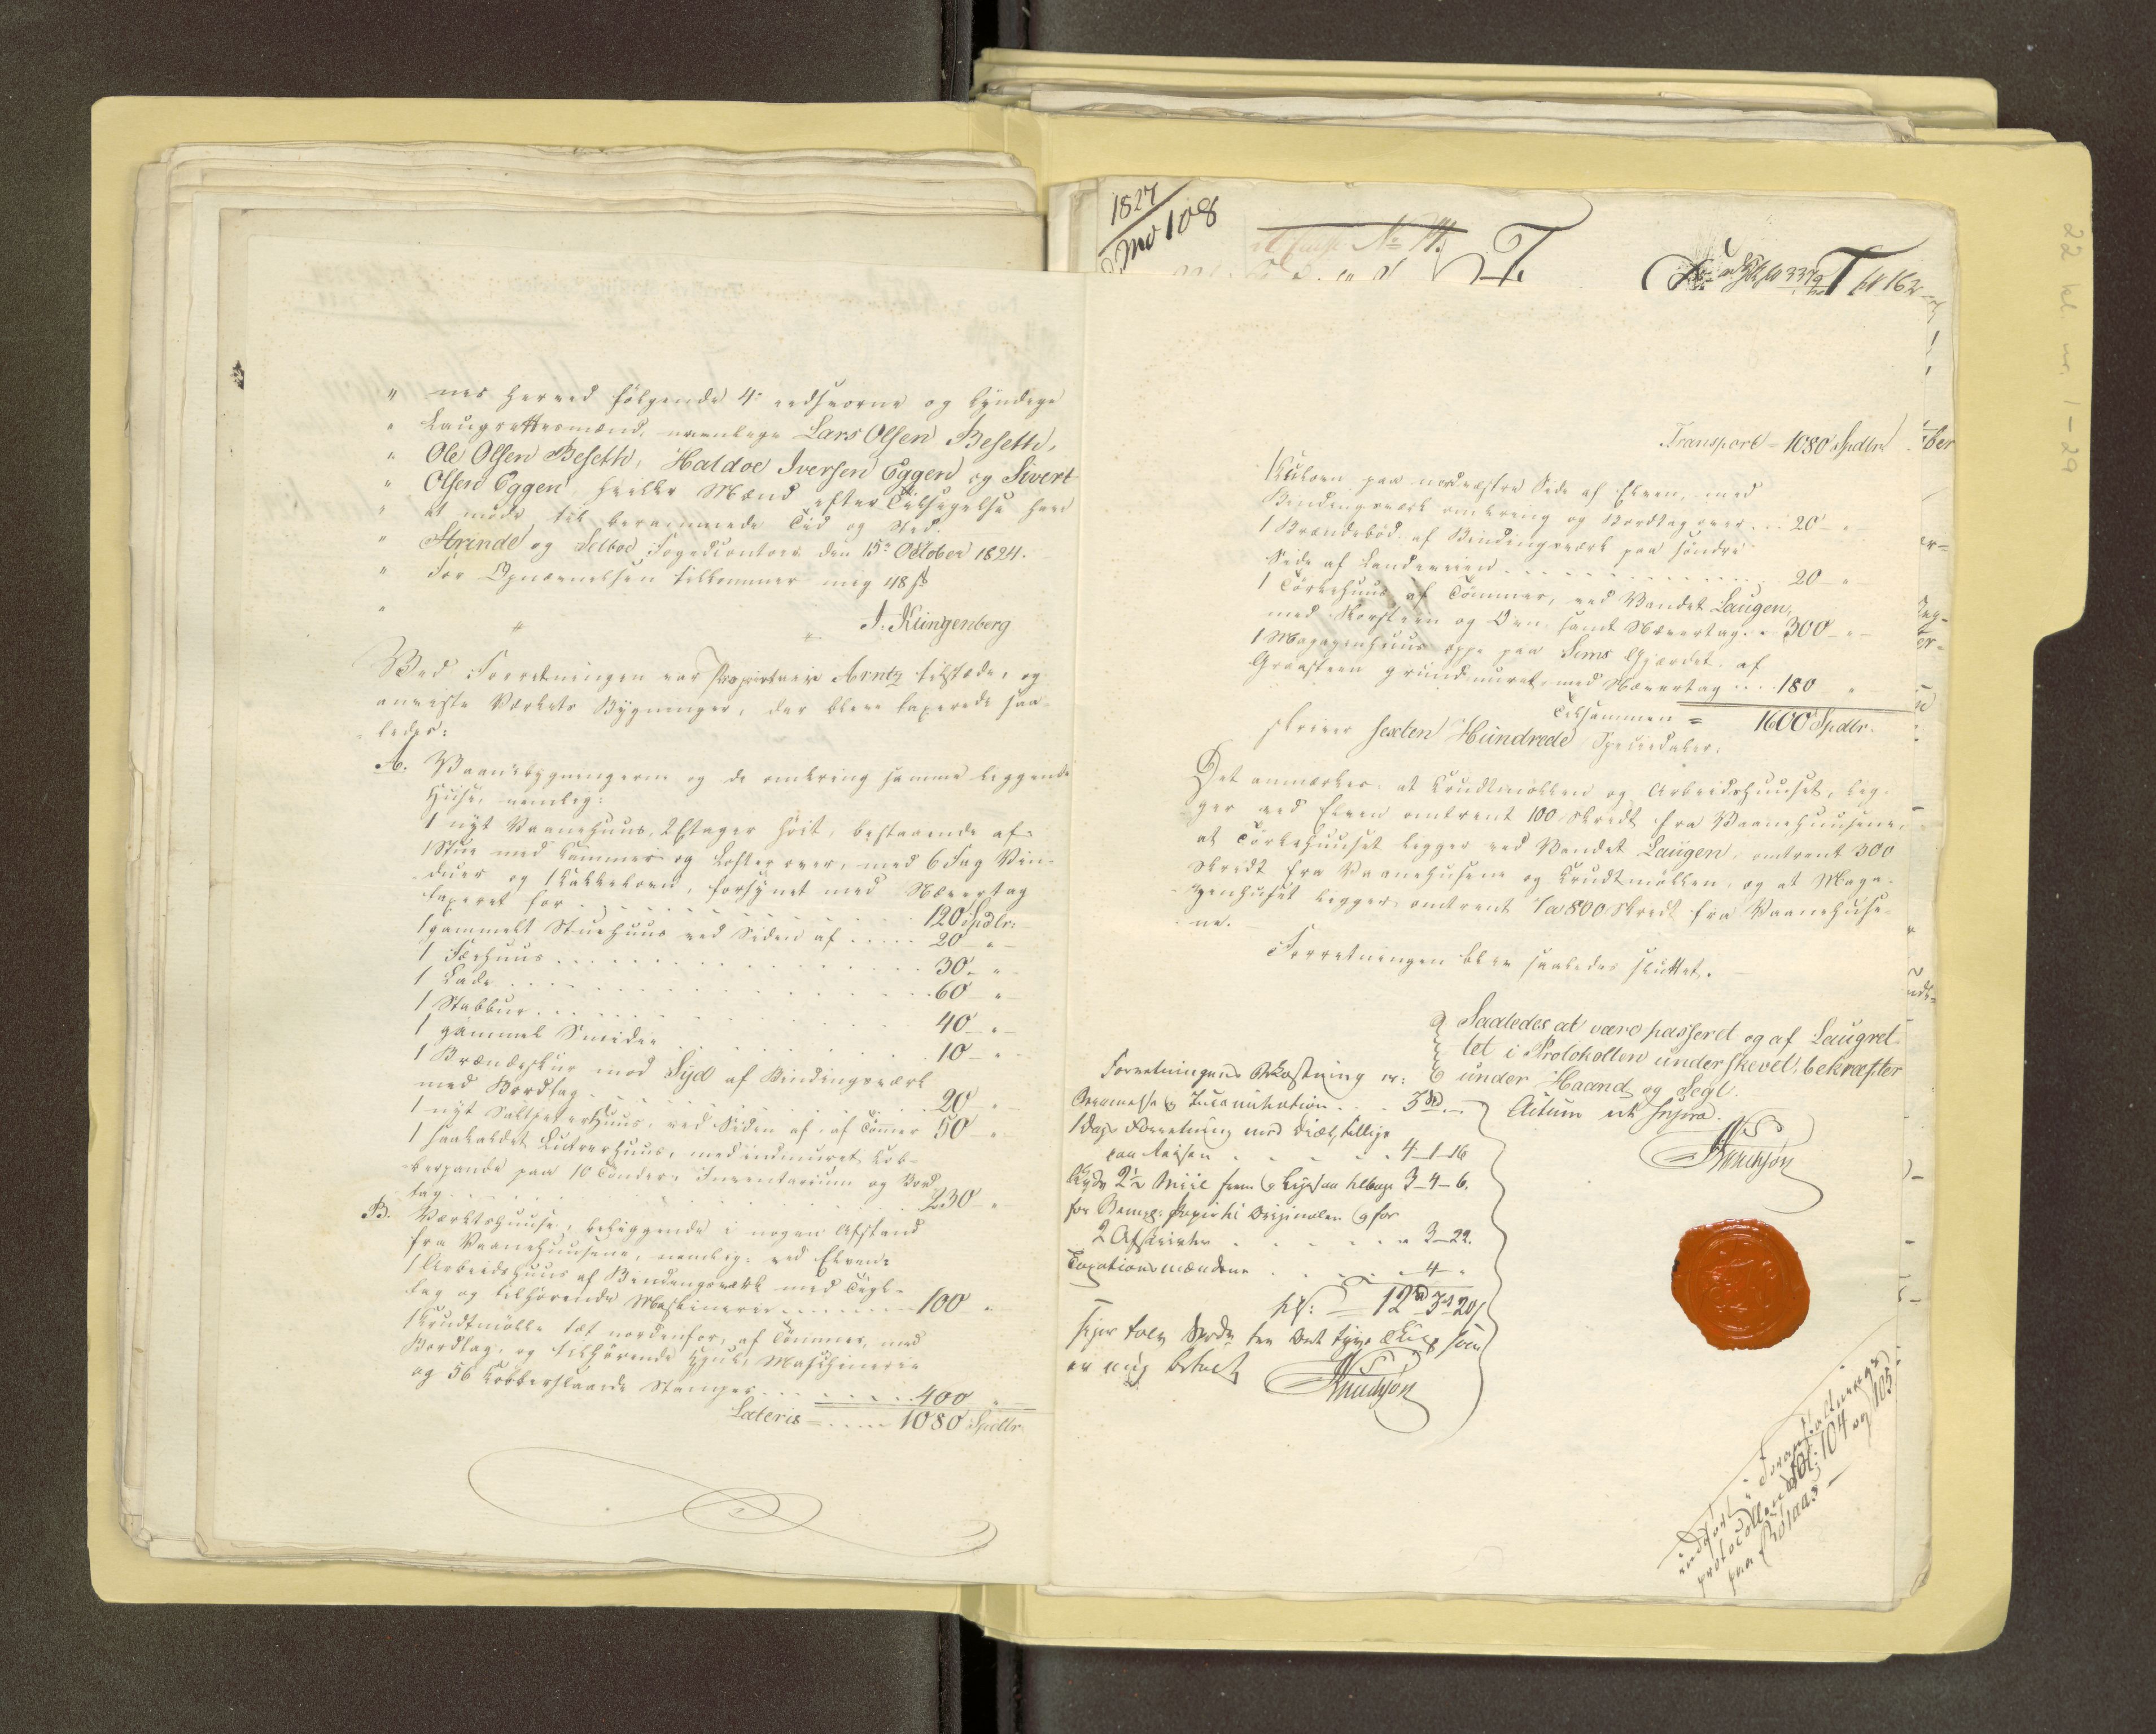 " nes herved følgende 4re eedsvorne og kyndige
" Laugrettesmænd, navnlige Lars Olsen Beseth,
" Ole Olsen Beseth, Haldoe Iversen Eggen og Sivert
" Olsen Eggen hvilke Mænd efter Tilsigelse haver
" at møde til berammede Tid og Sted.
" Strinde og Selboe Fogedcontoir den 15de October 1824.
" For Opnævnelsen tilkommer mig 48 s
" " " J. Klingenberg
Ved Forretningen var Proprietair Arntz tilstæde, og
anviiste Værkets Bygninger, der bleve taxerede saa-
ledes:
A. Vaanebygningerne og de omkring samme liggende
Huse, nemlig:
1 nyt Vaanehuus, 2 Etager høit, bestaaende af:
1 Stue med Kammer og Lofter over, med 6 Fag Vin-
duer og 1 Kakkelovn, forsynet med Nævertag
taxeret for . . . 120 Spdlr:
1 gammelt Stuehuus ved Siden af . . . . . 20 "
1 Fæehuus . . . 30 "
1 Lade . . . 60 "
1 Stabbur . . . 40 "
1 gammel Smidie . . . 10 "
1 Brændeskur mod Syd af Bindingsværk
med Bordtag . . . 20 "
1 nyt Saltpeterhuus, ved Siden af, af Tømer 50 "
1 saakaldet Lutterhuus, med indmuret Kob-
berpande paa 10 Tønder, Inventarium og Bord
tag . . . 230 "
B. Værkshuuse, beliggende i nogen Afstand
fra Vaanehuusene, nemlig: ved Elven:
1 Arbeidshuus af Bindingsværk med Tegl-
tag og tilhørende Maskinerie . . . 100 "
1 Krudtmølle tæt nordenfor, af Tømmer, med
Bordtag, og tilhørende Hjul, Maschinerie
og 56 Kobberslaaede Stamper . . . 400 "
Lateris = . . . . . 1080 Spdlr
1827
No 108
No 14.
T.
3379
T fol 162
Transport = 1080 Spdlr.
1 Kulovn paa nordvestre Side af Elven, med
Bindingsværk omkring og Bordtag over . . . 20 "
1 Brændebod af Bindingsværk paa søndre
Side af Landeveien . . . 20 "
1 Tørkehuus af Tømmer, ved Vandet Laugen,
med Skorsteen og Ovn samt Nævertag . . 300 "
1 Magazinhuus oppe paa Sems Gjærdet, af
Graasteen grundmuret, med Nævertag . . . . 180 "
Tilsammen = 1600 Spdlr.
skriver Sexten Hundrede Speciedaler.
Det anmærkes: at Krudtmøllen og Arbeidshuuset, lig-
ger ved Elven omtrent 100 Skridt fra Vaanehuusene,
at Tørkehuuset ligger ved Vandet Laugen, omtrent 300
Skridt fra Vaanehusene og Krudtmøllen, og at Maga-
zinhuset ligger omtrent 7 a 800 Skridt fra Vaanehuse-
ne.
Forretningen blev saaledes sluttet.
Saaledes at være passeret og af Laugret-
tet i Protokollen underskrevet, bekræfter
under Haand og Segl.
Actum ut supra.
Knudson
Forretningens Bekostning er:
Beramelse og Incamination . . . 3 Sp
1 Dags Forretning med Diæt, tillige
paa Reisen . . . 4-1-16
Skyds 2½ Miil frem og ligesaa tilbage 3-4-6.
for Stempl: Papir til Originalen og for
2 Afskrivter . . . " 3-22.
Taxationsmændene . . . " 4 "
12 Sp 3 20 s
siger tolv Spdr tre Ort tyve Skilg som
er mig betalt
Knudson
indført i Forandrings
protocollen fol: 104 og 105
paa Røraas
22 kl. nr. 1-29